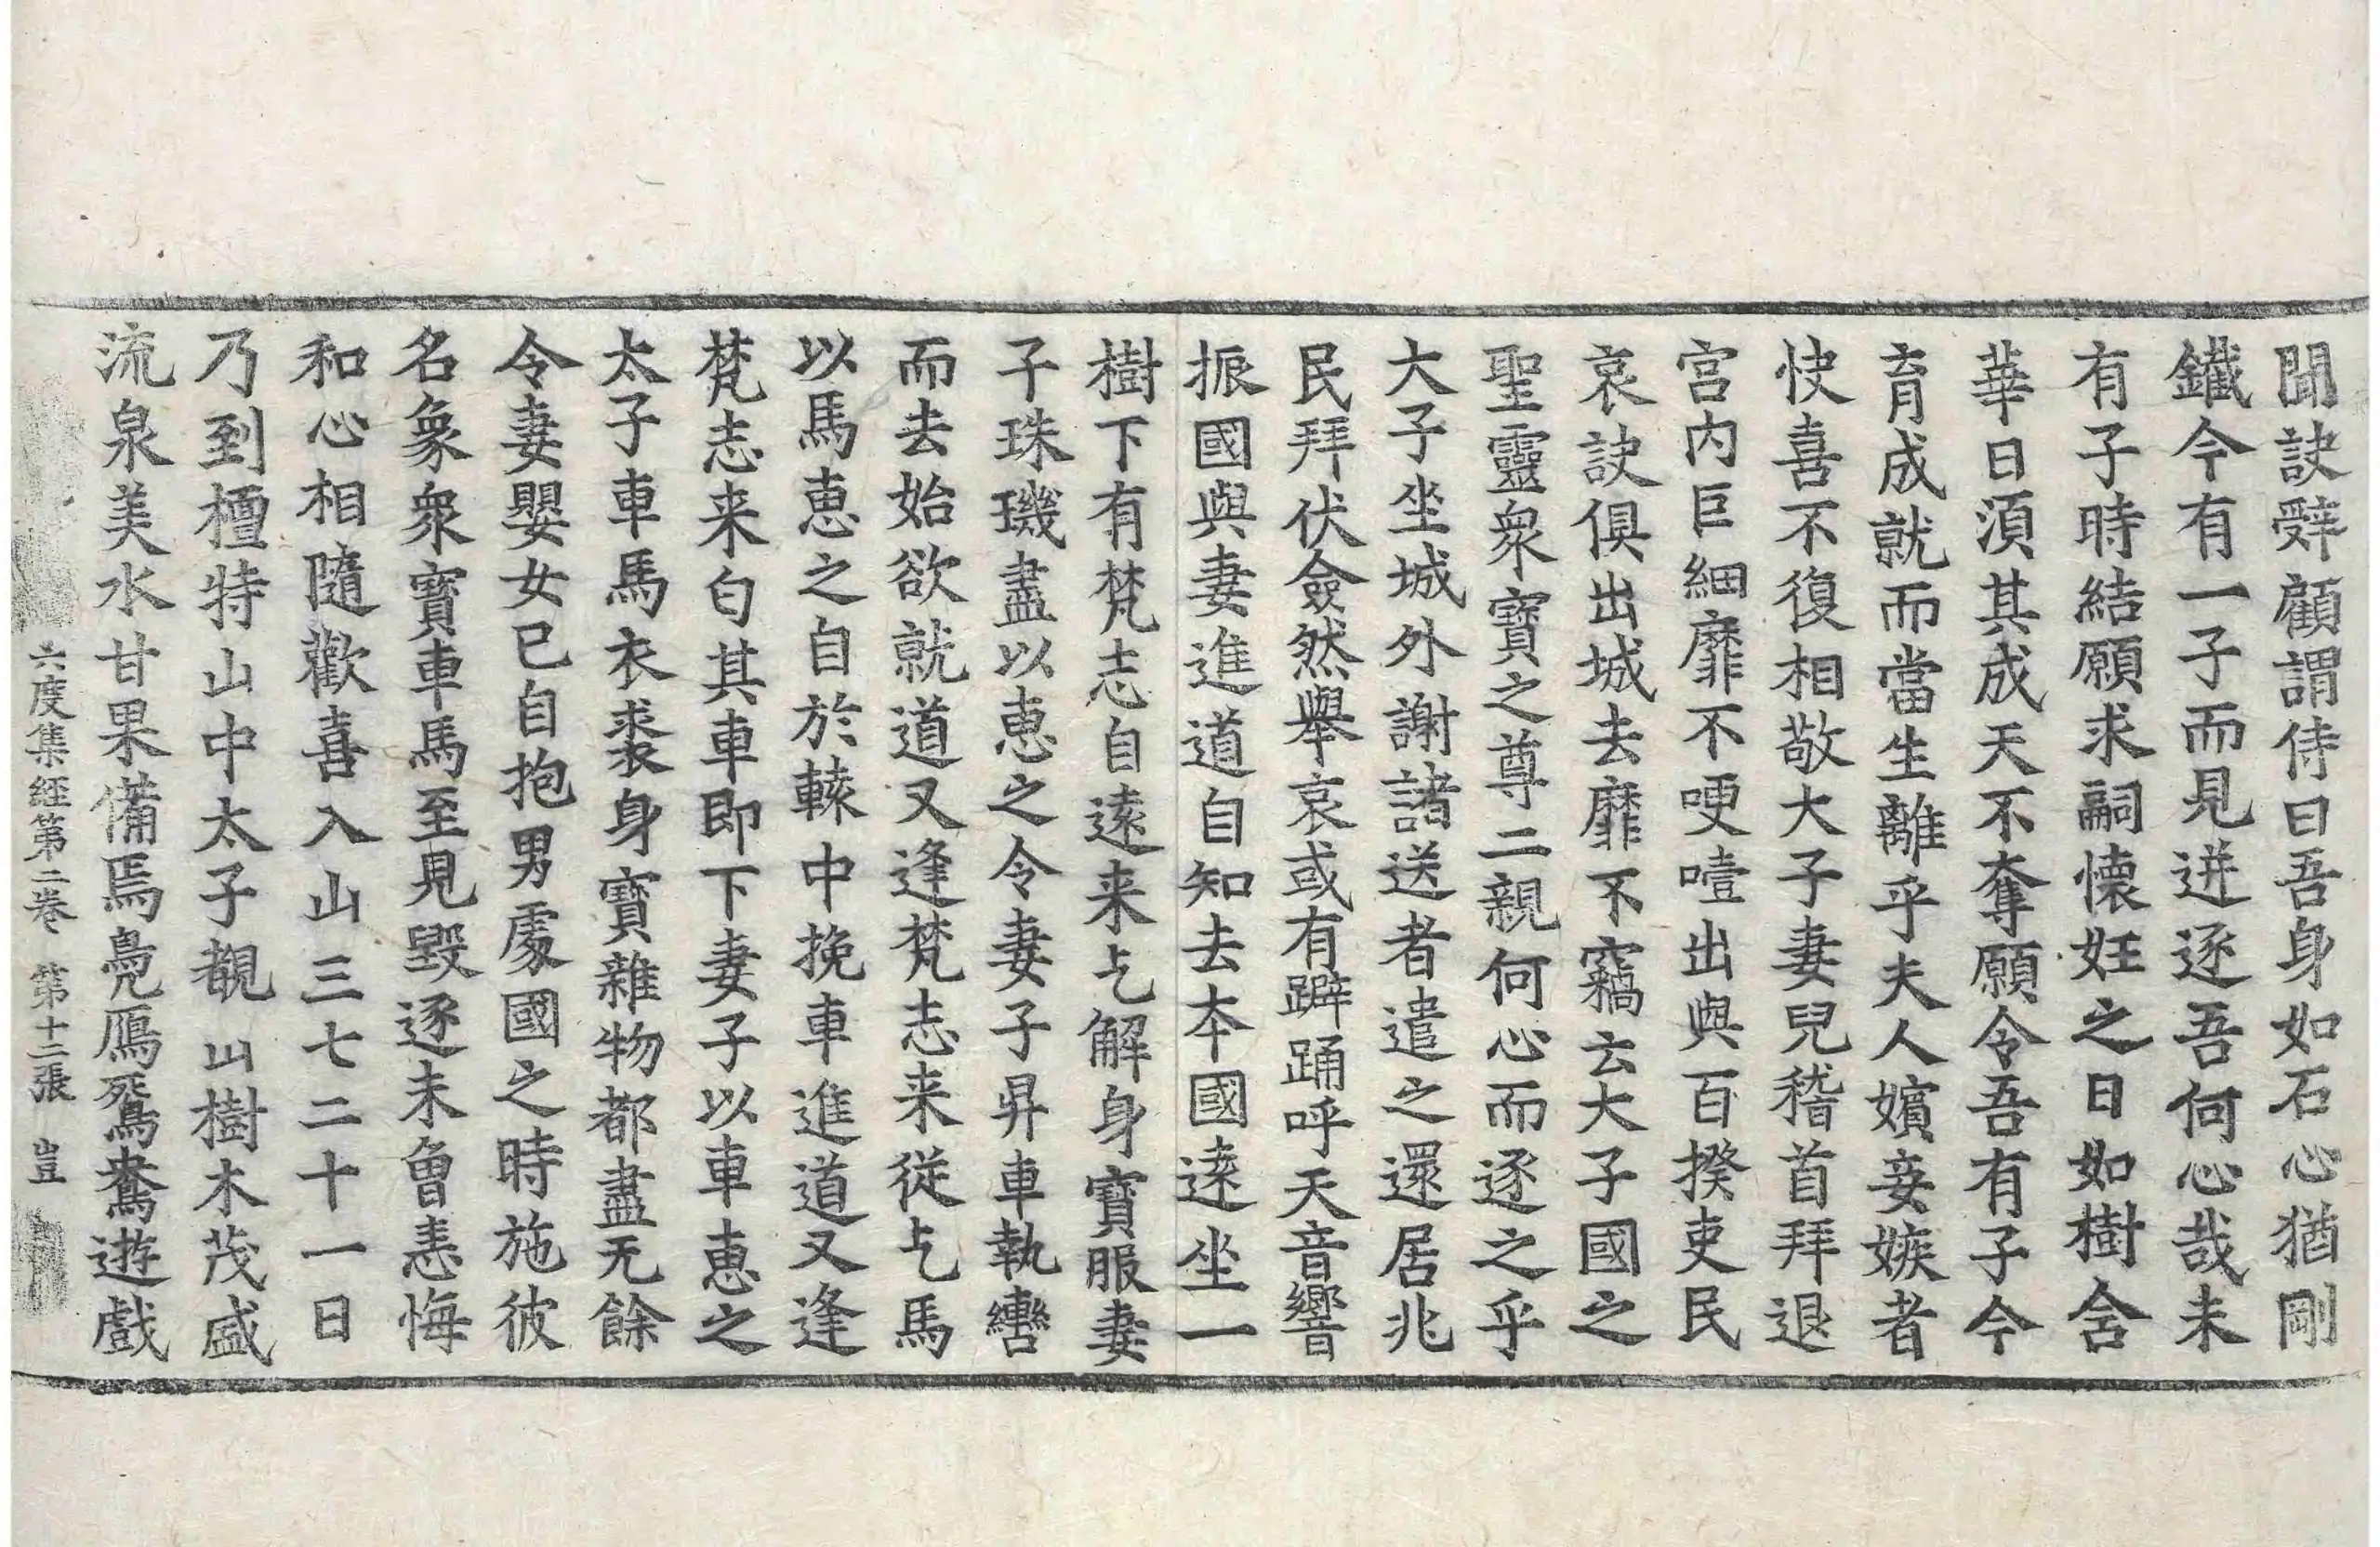 聞訣辭顧謂侍曰吾身如石心猶剛
鐵今有一子而見迸逐吾何心哉未
有子時結願求嗣懷妊之日如樹含
華日湏其成天不奪願令吾有子今
育成就而當生離乎夫人嬪妾嫉者
快喜不復相敬大子妻兒稽首拜退
宮内巨細靡不哽噎出與百揆吏民
哀訣俱出城去靡不竊云大子國之
聖靈衆寶之尊二親何心而逐之乎
大子坐城外謝諸送者遣之還居兆
民拜伏僉然舉哀或有躃踊呼天音響
振國與妻進道自知去夲國遠坐一
樹下有梵志自遠来乞解身寶服妻
子珠璣盡以恵之令妻子昇車執轡
而去始欲就道又逢梵志来從乞馬
以馬恵之自於轅中挽車進道又逢
梵志来匃其車即下妻子以車恵之
太子車馬衣裘身寶雜物都盡无餘
令妻嬰女已自抱男處國之時施彼
名象衆寶車馬至見毀逐未曾恚悔
和心相隨歡喜入山三七二十一日
乃到檀特山中太子覩山樹木茂盛
流泉美水甘果備焉鳧鴈鴛鴦遊戲
六度集経第二巻 第十二張 豈